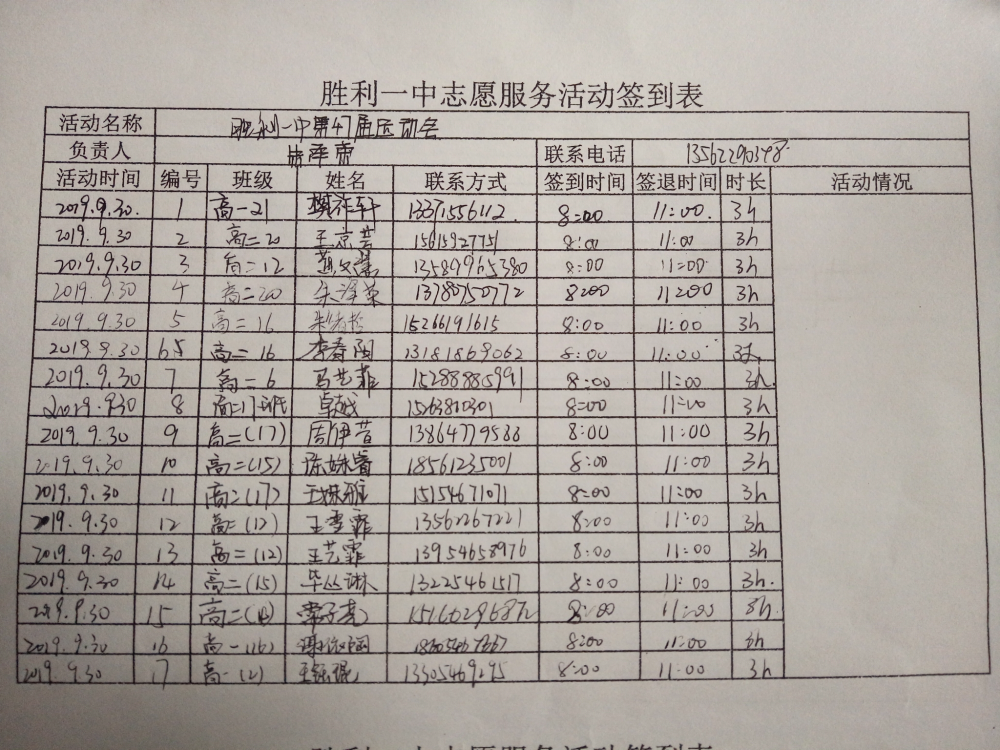 胜利一中志愿服务活动签到表
活动名称 胜利一中第47届运动会
负责人 联系电话 13562290348
活动时间 编号 班级 姓名 联系方式 签到时间 签退时间 时长 活动情况
2019.9.30. 1 高一21 13371556112. 8:00 11:00. 3h
2019.9.30 2 高二20 王京芸 15615927751 8:00 11:00 3h
2019.9.30 3 高二12 13589965380 8:00 11:00 3h
2019.9.30 4 高二20 朱泽荣 13780750772 8:00 11:00 3h
2019.9.30 5 高二16 15266191615 8:00 11:00 3h
2019.9.30 6 高二16 李春雨 13181869062 8:00 11:00 3h
2019.9.30 7 高二6 马艺菲 15288885991 8:00 11:00 3h.
2019.9.30 8 高二17班 卓越 1563810301 8:00 11:00 3h
2019.9.30 9 高二(17) 周伊萱 13864779588 8:00 11:00 3h
2019.9.30 10 高二(15) 陈姝睿 18561235001 8:00 11:00 3h
2019.9.30 11 高二(17) 王姝雅 15154671071 8:00 11:00 3h
2019.9.30 12 高二(12) 王雪霏 13562267221 8:00 11:00 3h
2019.9.30 13 高二(12) 王艺霏 13954658976 8:00 11:00 3h
2019.9.30 14 高二(15) 毕丛琳 13225461517 8:00 11:00 3h.
2019.9.30 15 8:00 11:00 3h.
2019.9.30 16 高一(16) 8:00 11:00 3h
2019.9.30 17 高一(2) 13305469295 8:00 11:00 3h